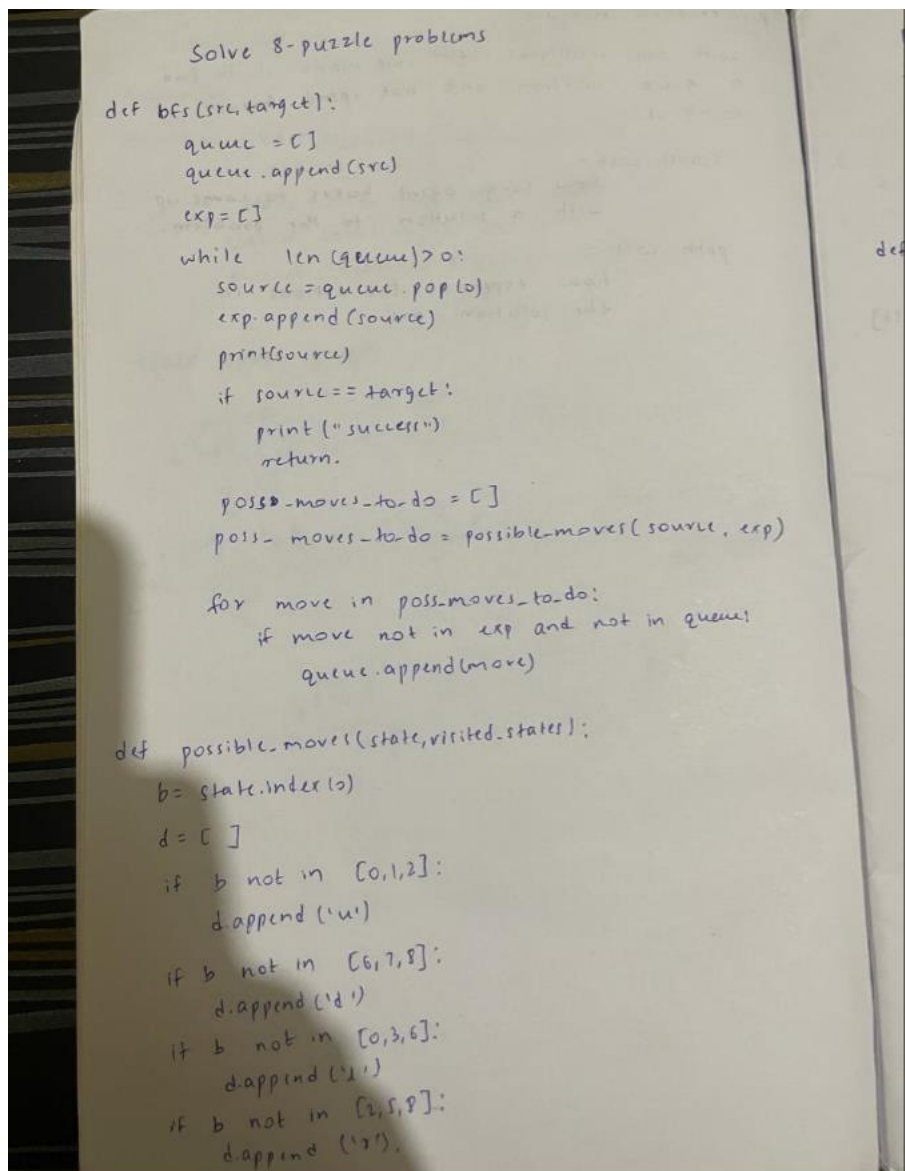 Solve 8-puzzle problems
def bfs(src, target):
queue = []
queue.append(src)
exp = []
while len(queue)>0:
source = queue.pop(0)
exp.append(source)
print(source)
if source == target:
print("success")
return.
poss-moves-to-do = []
poss- moves-to-do = possible-moves(source, exp)
for move in poss-moves-to-do:
if move not in exp and not in queue:
queue.append(move)
def possible-moves(state, visited-states):
b= state.index(0)
d = [ ]
if b not in [0,1,2]:
d.append('u')
if b not in [6,7,8]:
d.append('d')
if b not in [0,3,6]:
d.append('l')
if b not in [2,5,8]:
d.append('r').
def